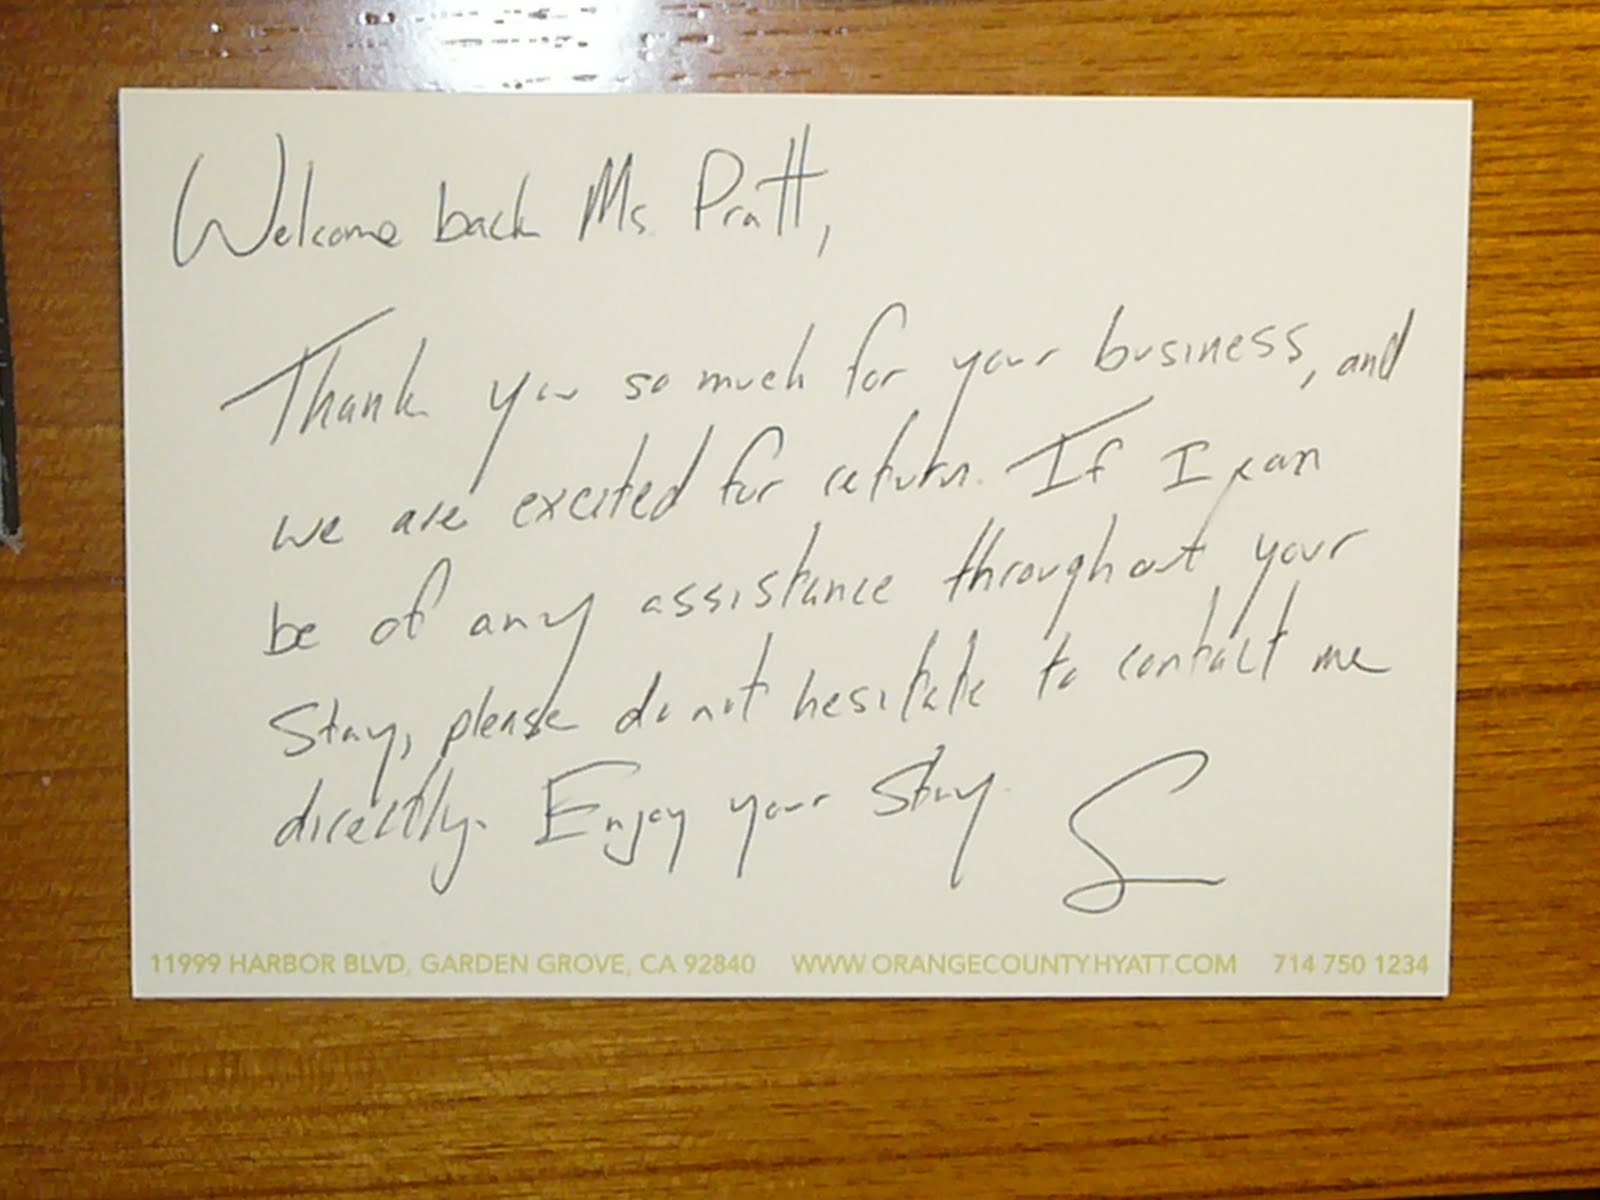 Welcome back Ms. Pratt,
Thank you so much for your business, and
we are excited for return. If I can
be of any assistance throughout your
Stay, please do not hesitate to contact me
directly. Enjoy your Stay.
11999 HARBOR BLVD, GARDEN GROVE, CA 92840 WWW.ORANGECOUNTY.HYATT.COM 714 750 1234